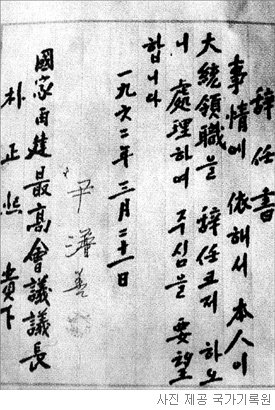 辭任書
事情에 依해서 本人이
大統領職을 辭任코저 하오
니 處理하여 주심을 要望
합니다
一九六二年 三月二十二日
尹潽善
國家再建最高會議議長
朴正熙 貴下
사진 제공 국가기록원